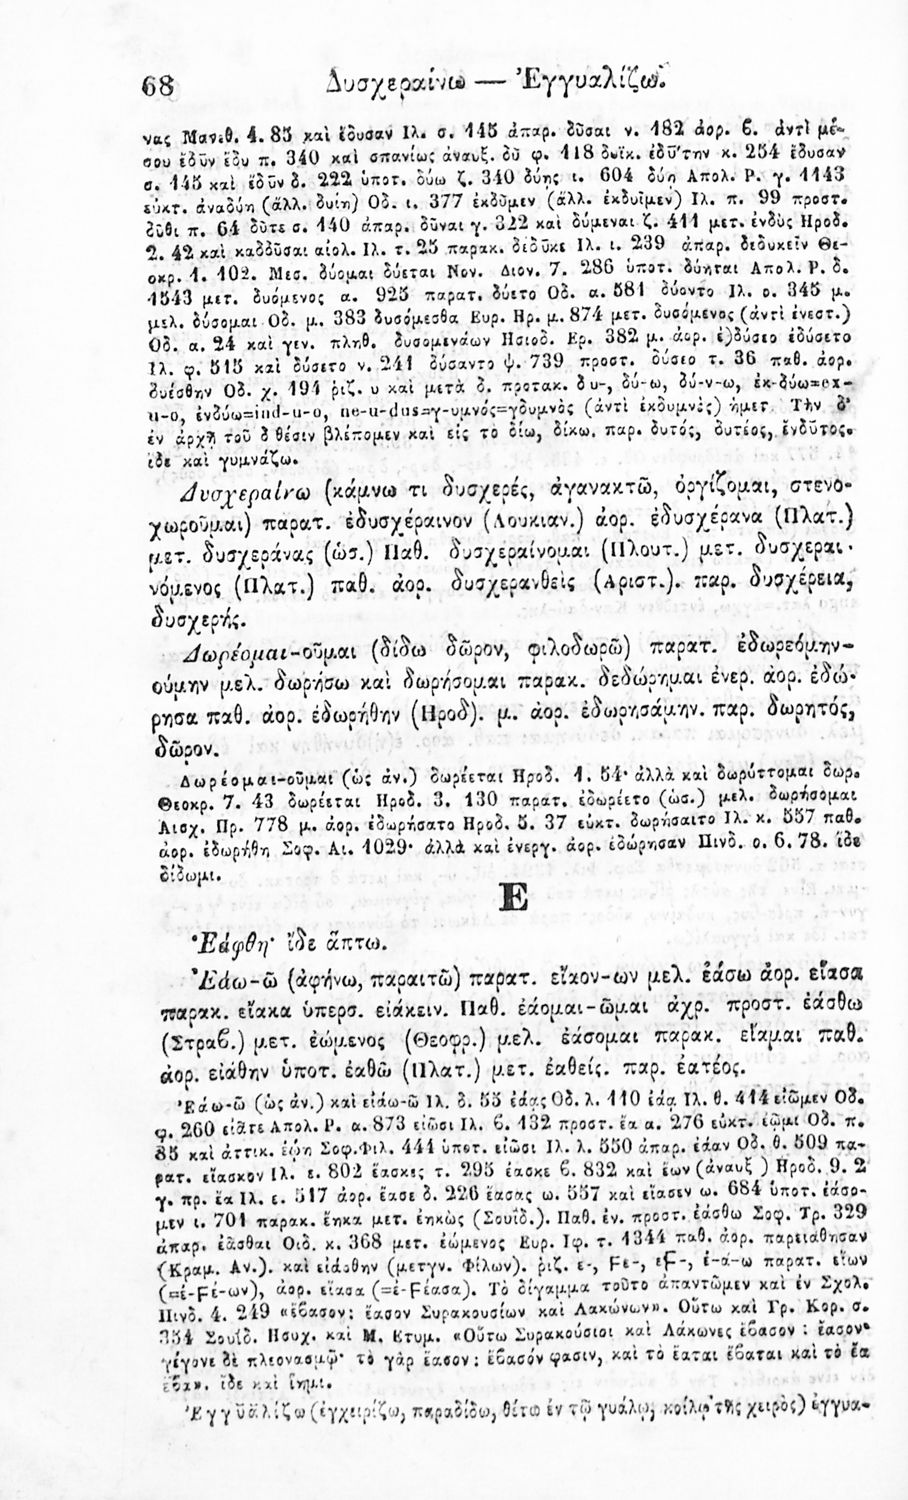 68 Δυσχεραίνω — Ἐγγυαλίζω.
νας Μανεθ. 4. 85 καὶ ἔδυσαν Ιλ. σ. 145 ἀπαρ. δῦσαι ν. 182 ἀορ. β. ἀντὶ μέ-
σου ἔδῡν ἔδυ π. 340 καὶ σπανίως ἀναυξ. δῦ φ. 118 δυϊκ. ἐδύτην κ. 254 ἔδυσαν
σ. 145 καὶ ἔδῡν δ. 222 ὑποτ. δύω ζ. 340 δύης ι. 604 δύῃ Απολ. Ρ. γ. 1143
εὐκτ. ἀναδύη (ἄλλ. δυίη) Οδ. ι. 377 ἐκδῦμεν (ἄλλ. ἐκδυῖμεν) Ιλ. π. 99 προστ.
δῦθι π. 64 δῦτε σ. 140 ἀπαρ. δῦναι γ. 322 καὶ δύμεναι ζ. 411 μετ. ἐνδὺς Ηροδ.
2. 42 καὶ καδδῦσαι αἰολ. Ιλ. τ. 25 παρακ. δέδῡκε Ιλ. ι. 239 ἀπαρ. δεδυκεῖν Θε-
οκρ. 1. 102. Μεσ. δύομαι δύεται Νον. Διον. 7. 286 ὑποτ. δύηται Απολ. Ρ. δ.
1543 μετ. δυόμενος α. 925 παρατ. δύετο Οδ. α. 581 δύοντο Ιλ. ο. 345 μ.
μελ. δύσομαι Οδ. μ. 383 δυσόμεσθα Ευρ. Ηρ. μ. 874 μετ. δυσόμενος (ἀντὶ ἐνεστ.)
Οδ. α. 24 καὶ γεν. πληθ. δυσομενάων Ησιοδ. Ερ. 382 μ. ἀορ. ἐ)δύσεο ἐδύσετο
Ιλ. φ. 515 καὶ δύσετο ν. 241 δύσαντο ψ. 739 προστ. δύσεο τ. 36 παθ. ἀορ.
δυέσθην Οδ. χ. 194 ῥιζ. υ καὶ μετὰ δ. προτακ. δυ-, δύ-ω, δύ-ν-ω, ἐκ-δύω=ex-
u-o, ἐνδύω=ind-u-o, ne-u-dus=γ-υμνός=γδυμνὸς (ἀντὶ ἐκδυμνὸς) ἡμετ. Τὴν δ'
ἐν ἀρχῇ τοῦ δ θέσιν βλέπομεν καὶ εἰς τὸ δίω, δίκω. παρ. δυτός, δυτέος, ἔνδῦτος.
ἰδὲ καὶ γυμνάζω.
Δυσχεραίνω (κάμνω τι δυσχερές, ἀγανακτῶ, ὀργίζομαι, στενο-
χωροῦμαι) παρατ. ἐδυσχέραινον (Λουκιαν.) ἀορ. ἐδυσχέρανα (Πλατ.)
μετ. δυσχεράνας (ὡσ.) Παθ. δυσχεραίνομαι (Πλουτ.) μετ. δυσχεραι-
νόμενος (Πλατ.) παθ. ἀορ. δυσχερανθεὶς (Αριστ.). παρ. δυσχέρεια,
δυσχερής.
Δωρέομαι-οῦμαι (δίδω δῶρον, φιλοδωρῶ) παρατ. ἐδωρεόμην-
ούμην μελ. δωρήσω καὶ δωρήσομαι παρακ. δεδώρημαι ἐνερ. ἀορ. ἐδώ-
ρησα παθ. ἀορ. ἐδωρήθην (Ηροδ). μ. ἀορ. ἐδωρησάμην. παρ. δωρητός,
δῶρον.
Δωρέομαι-οῦμαι (ὡς ἀν.) δωρέεται Ηροδ. 1. 54· ἀλλὰ καὶ δωρύττομαι δωρ.
Θεοκρ. 7. 43 δωρέεται Ηροδ. 3. 130 παρατ. ἐδωρέετο (ὡσ.) μελ. δωρήσομαι
Αισχ. Πρ. 778 μ. ἀορ. ἐδωρήσατο Ηροδ. 5. 37 εὐκτ. δωρήσαιτο Ιλ. κ. 557 παθ.
ἀορ. ἐδωρήθη Σοφ. Αι. 1029· ἀλλὰ καὶ ἐνεργ. ἀορ. ἐδώρησαν Πινδ. ο. 6. 78. ἴδε
δίδωμι.
Ε
Ἐάφθη· ἴδε ἅπτω.
Ἐάω-ῶ (ἀφήνω, παραιτῶ) παρατ. εἴαον-ων μελ. ἐάσω ἀορ. εἴασα
παρακ. εἴακα ὑπερσ. εἰάκειν. Παθ. ἐάομαι-ῶμαι ἀχρ. προστ. ἐάσθω
(Στραβ.) μετ. ἐώμενος (Θεοφρ.) μελ. ἐάσομαι παρακ. εἴαμαι παθ.
ἀορ. εἰάθην ὑποτ. ἐαθῶ (Πλατ.) μετ. ἐαθείς. παρ. ἐατέος.
Ἐάω-ῶ (ὡς ἀν.) καὶ εἰάω-ῶ Ιλ. δ. 55 ἐάᾳς Οδ. λ. 110 ἐάᾳ Ιλ. θ. 414 εἰῶμεν Οδ.
φ. 260 εἰᾶτε Απολ. Ρ. α. 873 εἰῶσι Ιλ. β. 132 προστ. ἔα α. 276 εὐκτ. ἐῷμι Οδ. π.
85 καὶ ἀττικ. ἐῴη Σοφ. Φιλ. 444 ὑποτ. εἰῶσι Ιλ. λ. 550 ἀπαρ. ἐάαν Οδ. θ. 509 πα-
ρατ. εἴασκον Ιλ. ε. 802 ἔασκες τ. 295 ἔασκε β. 832 καὶ ἔων (ἀναυξ ) Ηροδ. 9. 2
γ. πρ. ἔα Ιλ. ε. 517 ἀορ. ἔασε δ. 226 ἔασας ω. 557 καὶ εἴασεν ω. 684 ὑποτ. ἐάσο-
μεν ι. 701 παρακ. ἔηκα μετ. ἐηκὼς (Σουΐδ.). Παθ. ἐν. προστ. ἐάσθω Σοφ. Τρ. 329
ἀπαρ. ἐᾶσθαι Οιδ. κ. 368 μετ. ἐώμενος Ευρ. Ιφ. τ. 1344 παθ. ἀορ. παρειάθησαν
(Κραμ. Αν.). καὶ εἰάσθην (μετγν. Φίλων). ῥιζ. ε-, Ϝε-, εϜ-, ἐ-ά-ω παρατ. εἴων
(=ἐ-Ϝέ-ων), ἀορ. εἴασα (=ἐ-Ϝέασα). Τὸ δίγαμμα τοῦτο ἀπαντῶμεν καὶ ἐν Σχολ.
Πινδ. 4. 249 «ἔβασον: ἔασον Συρακουσίων καὶ Λακώνων». Οὕτω καὶ Γρ. Κορ. σ.
354 Σουΐδ. Ησυχ. καὶ Μ. Ετυμ. «Οὕτω Συρακούσιοι καὶ Λάκωνες ἔβασον : ἔασον·
γέγονε δὲ πλεονασμῷ· τὸ γὰρ ἔασον: ἔβασόν φασιν, καὶ τὸ ἔαται ἔβαται καὶ τὸ ἔα
ἔβα». ἴδε καὶ ἵημι.
Ἐγγῠᾰλίζω (ἐγχειρίζω, παραδίδω, θέτω ἐν τῷ γυάλῳ, κοίλῳ τῆς χειρὸς) ἐγγυα-